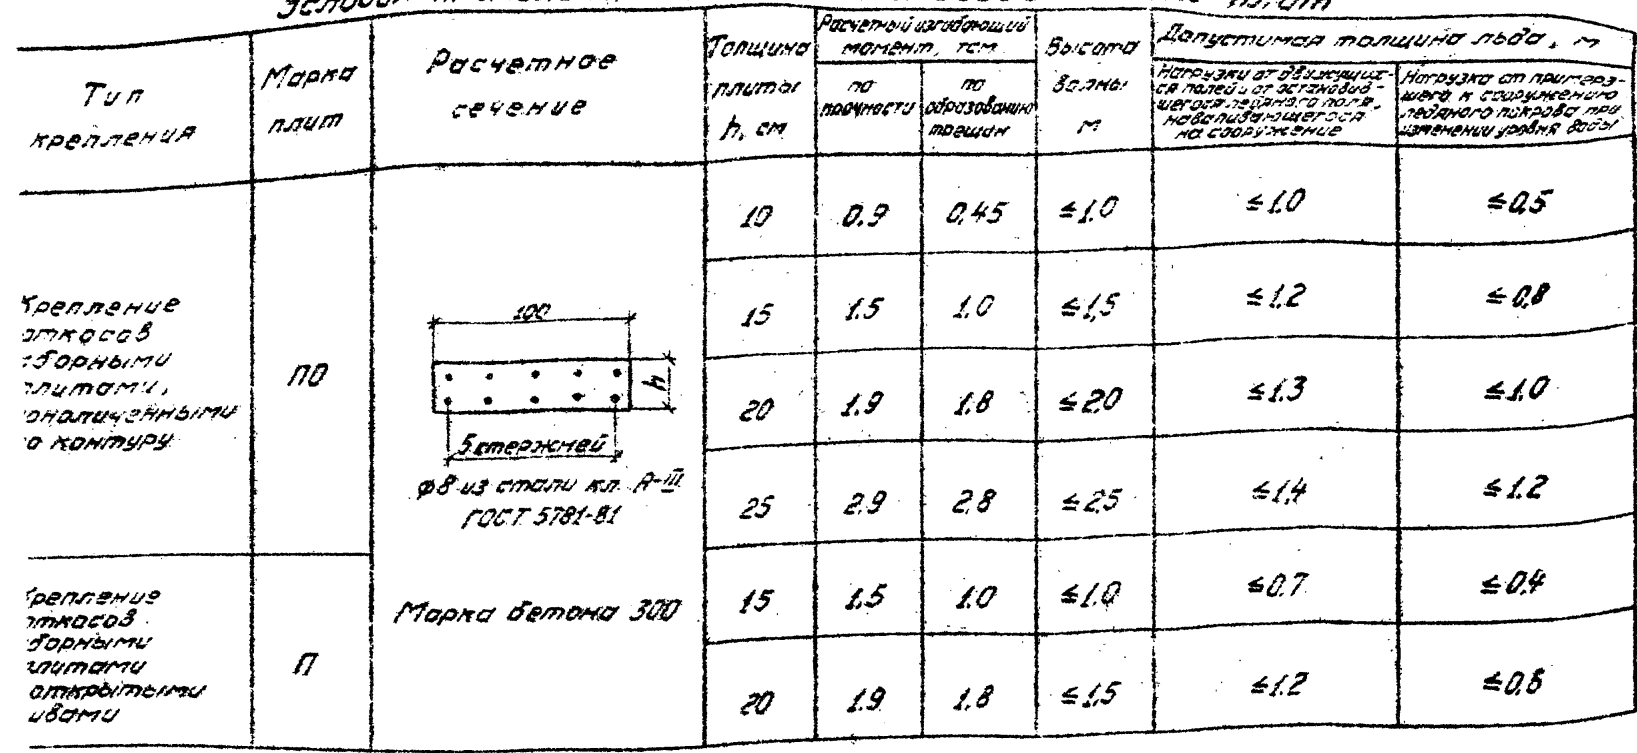 Тип
крепления
Марка
плит
Расчетное
сечение
Толщина
плиты
h, см
Расчетный изгибающий
момент, тсм
по
прочности
по
образованию
трещин
Высота
волны
м
Допустимая толщина льда, м
Нагрузки от движущих-
ся полей и от остановив-
шегося ледяного поля,
наваливающегося
на сооружение
Нагрузка от примерз-
шего к сооружению
ледяного покрова при
изменении уровня воды
Крепление
откосов
сборными
плитами,
омоноличенными
по контуру
ПО
100
h
5 стержней
ф8 из стали кл. А-III
ГОСТ 5781-81
Марка бетона 300
10 0.9 0,45 ≤1.0 ≤1.0 ≤0,5
15 1.5 1.0 ≤1,5 ≤1.2 ≤0,8
20 1.9 1.8 ≤2.0 ≤1.3 ≤1.0
25 2.9 2.8 ≤2.5 ≤1.4 ≤1.2
репление
откосов
сборными
плитами
открытыми
ивами
П
15 1.5 1.0 ≤1.0 ≤0.7 ≤0.4
20 1.9 1.8 ≤1,5 ≤1.2